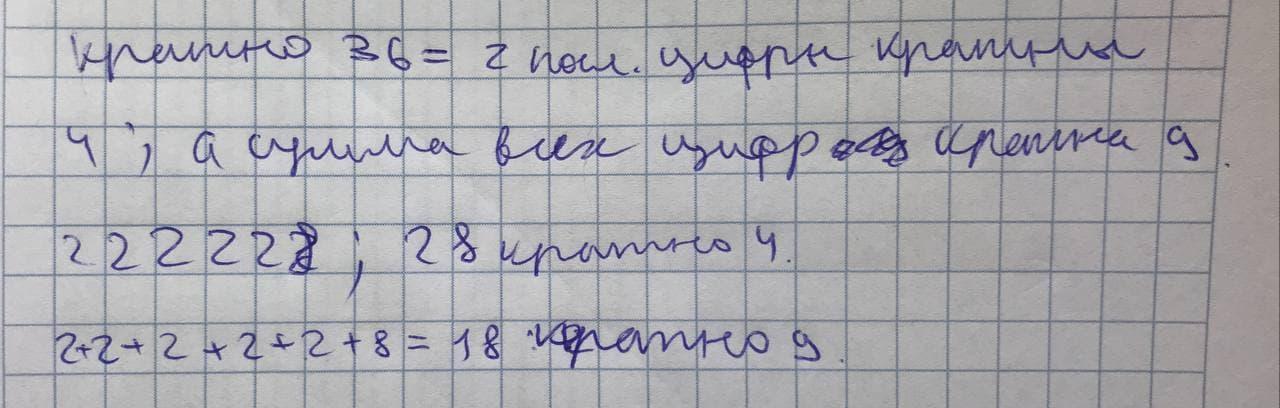 Кратно 36 = 2 посл. цифры кратны
4 ; а сумма всех цифр кратна 9.
222228 ; 28 кратно 4.
2+2+2+2+2+8 = 18 кратно 9.